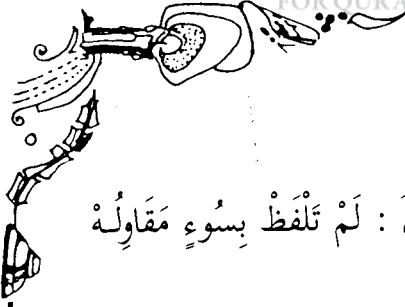 FOR QURA
: لَمْ تَلْفَظْ بِسُوءٍ مَقَاوِلُـهْ